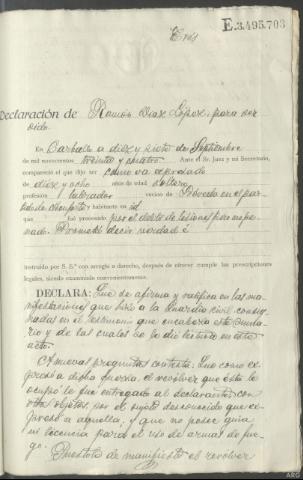 E.3.495.703
Tres
Declaración de Ramón Diaz López, para ser
oido.
En Carballo a diez y siete de Septiembre
de mil novecientos treinta y cuatro Ante el Sr. Juez y mi Secretario,
compareció el que dijo ser como va expresado
de diez y ocho años de edad, soltero
profesión labrador vecino de en el par-
habitante en id
que fué procesado por el delito de lesiones
nado. Prometió decir verdad é
instruído por S. S.ª con arreglo a derecho, después de ofrecer cumplir las prescripciones
legales, siendo examinado convenientemente.
DECLARA: Que se afirma y ratifica en las ma-
nifestaciones que hizo a la Guardia civil consig-
nadas en el testimonio que encabeza este Suma-
rio y de las cuales se le dió lectura en este
acto.
A nuevas preguntas contesta: Que como ex-
presó a dicha fuerza el revólver que éste le
ocupó le fue entregado al declarante con
otros objetos, por el sujeto desconocido que ex-
presó a aquella, y que no posee guía
ni licencia para el uso de armas de fue-
go.
Puestole de manifiesto el revólver
ARG